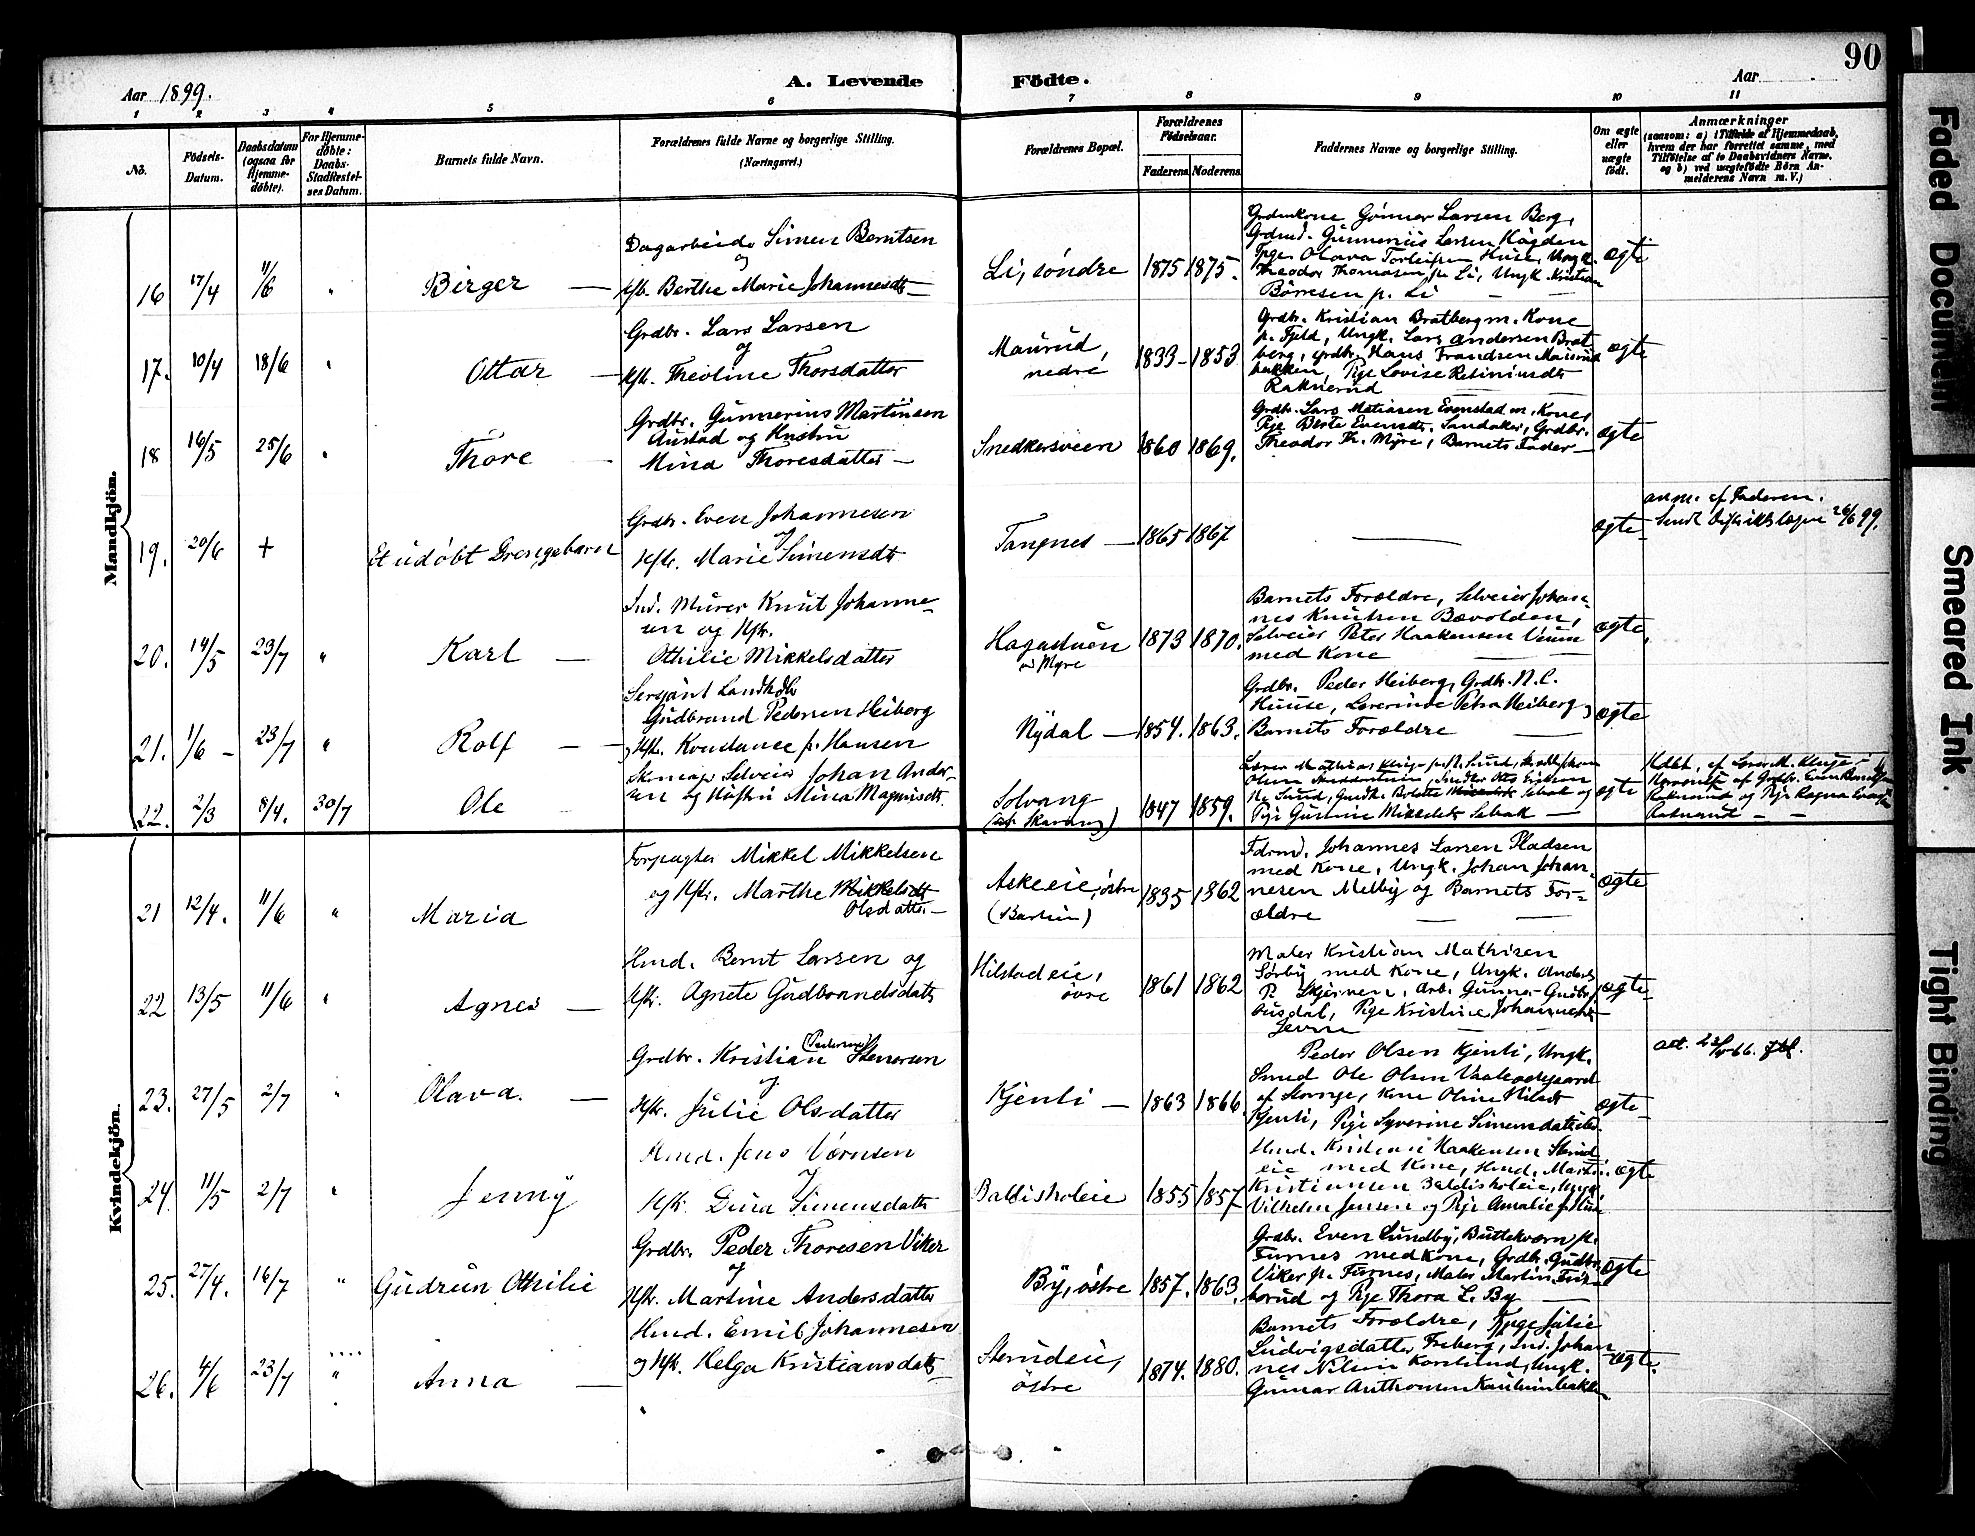 90
Aar 1899.
A. Levende Födte.
Aar
1 2 3 4 5 6 7 8 9 10 11
No.
Födsels-Datum.
Daabsdatum (ogsaa for Hjemme-döbte).
For Hjemme-döbte: Daabs-Stadfæstel-ses Datum.
Barnets fulde Navn.
Forældrenes fulde Navne og borgerlige Stilling. (Næringsvei.)
Forældrenes Bopæl.
Forældrenes Födselsaar.
Faderens Moderens
Faddernes Navne og borgerlige Stilling.
Om ægte eller uægte födt.
Anmærkninger
(saasom: a) i Tilfælde af Hjemmedaab, hvem der har forrettet samme, med Tilföielse af to Daabsvidners Navne, og b) ved uægtefödte Börn An-melderens Navn m. V.)
Mandkjön.
16 17/4 11/6 " Birger —
Dagarbeide Simen Berntsen
og
Hst. Berthe Marie Johannesdt —
Li, söndre 1875 1875.
Grdmkone Gunner Larsen Berg,
Grdmd. Gunnerius Larsen Haugden
Pige Olava Torleifsen Huse, Ungk.
Theodor Thomasen p. Li, Ungk. Kristian
Börresen p. Li —
ægte
17. 10/4 18/6 " Ottar —
Grdbr. Lars Larsen
og
Hst. Theoline Thorsdatter
Maurud, nedre 1833 - 1853
Grdbr. Kristian Bratberg m. Kone
p. Fjeld, Ungk. Lars Andersen Brat-
berg, Grdbr. Hans Frandsen Maurud
bakken, Pige Lovise
Raknerud
ægte
18 16/5 25/6 " Thore —
Grdbr. Gunnerius Martinsen
Austad og Hustru
Mina Thoresdatter —
Snedkersveen 1860 1869.
Grdbr. Lars Matiasen Evenstad m. Kone,
Pige Berte Evensdt. Sandaker, Grdbr.
Theodor Th. Myre, Barnets Fader —
ægte
19. 20/6 + Et udöbt Drengebarn
Grdbr. Even Johannesen
og
Hst. Marie Simensdt
Tangnes — 1865 1867
ægte
anm. af Faderen.
Sendt Distriktslægen 26/6 99.
20. 14/5 23/7 " Karl —
Ind. Murer Knut Johanne-
sen og Hst.
Othilie Mikkelsdatter
Hagastuen
v/ Myre
1873 1870.
Barnets Forældre, Selveier Johan-
nes Knutsen Bævolden,
Selveier Peter Haakensen Veum
med Kone
ægte.
21. 1/6 - 23/7 " Rolf — —
Sersjant Landhdlr
Gudbrand Pedersen Heiberg
og Hst. Konstance f. Hansen
Nydal — 1854. 1863.
Grdbr. Peder Heiberg, Grdbr. N. C.
Huuse, Lærerinde Petra Heiberg,
Barnets Forældre
ægte
22. 2/3 8/4. 30/7 Ole —
Selveier Johan Ander-
sen og Hustru Mina Magnusdt.
Solvang
1847 1859.
Pige Gunine
ægte
Kvindekjön.
21 12/4. 11/6 " Maria
Forpagter Mikkel Mikkelsen
og Hst. Marthe Mikkelsdt
Olsdatter —
Askeeie, östre
1835 1862
Fdrmd. Johannes Larsen Pladsen
med Kone, Ungk. Johan Johan-
nesen Melby og Barnets For-
ældre
ægte
22 13/5 11/6 " Agnes —
Hmd. Bernt Larsen og
Hst. Agnete Gudbrandsdatr
Hilstadeie,
övre
1861 1862
Maler Kristian Mathisen
Sörby med Kone, Ungk. Anders
P. Skjerven, Arb. Gunner Gudbr.
Pige Kristine Johannesdt
ægte
23. 27/5 2/7 " Olava. —
(Pedersen)
Grdbr. Kristian Stenersen
og
Hst. Julie Olsdatter
Kjenli — 1863 1866.
Peder Olsen Kjenli, Ungk.
Smed Ole Olsen
Kone Oline
Kjenli, Pige Syverine Simensdatter
ægte
24. 11/5 2/7 " Jenny
Hmd. Jens Vörnsen
og
Hst. Dina Simensdatr
Baldisholeie 1855 1857
Hmd. Kristian Haakensen
med Kone, Hmd. Martin
Kristiansen Baldisholeie, Ungk.
Vilhelm Jensen og Pige Amalie
ægte
25. 27/4. 16/7 " Gudrun Othilie
Grdbr. Peder Thoresen Viker
og
Hst. Martine Andersdatter
By, östre 1857. 1863.
Grdbr. Even Lundby, Buttekværn p.
Furnes med Kone, Grdbr. Gudbr.
Viker p. Furnes, Maler Martin
og Pige Thora L. By
ægte
26. 4/6 23/7 " Anna —
Hmd. Emil Johannesen
og Hst. Helga Kristiansdatr
Sterudeie,
östre
1874. 1880.
Barnets Forældre, Pige Julie
Ludvigsdatter Friberg, Ind. Johan-
nes Nilsen Korslund, Ungk.
Gunnar Anthonsen
ægte.
Faded Document
Smeared Ink.
Tight Binding